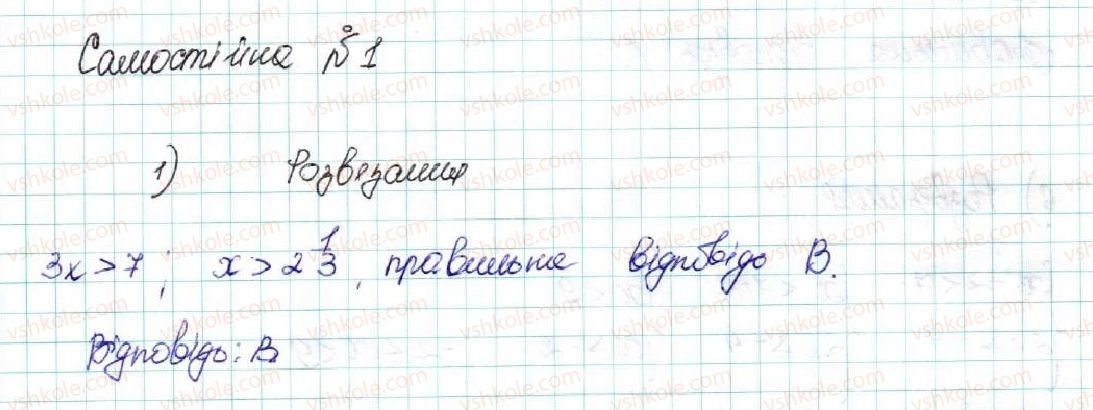 Самостійна №1
1) Розвязання
3x > 7; x > 2 1/3, правильна відповідь В.
Відповідь: В.